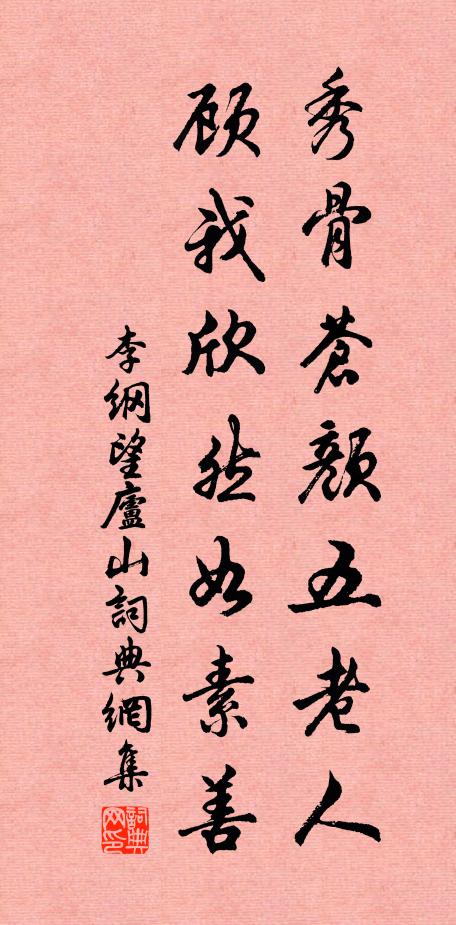 秀骨苍颜五老人
顾我欣然如素善
李纲望廬山詞典網集
詞典网印